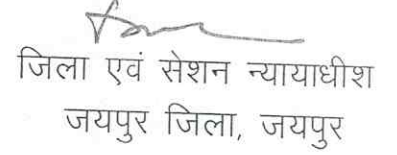 जिला एवं सेशन न्यायाधीश
जयपुर जिला, जयपुर